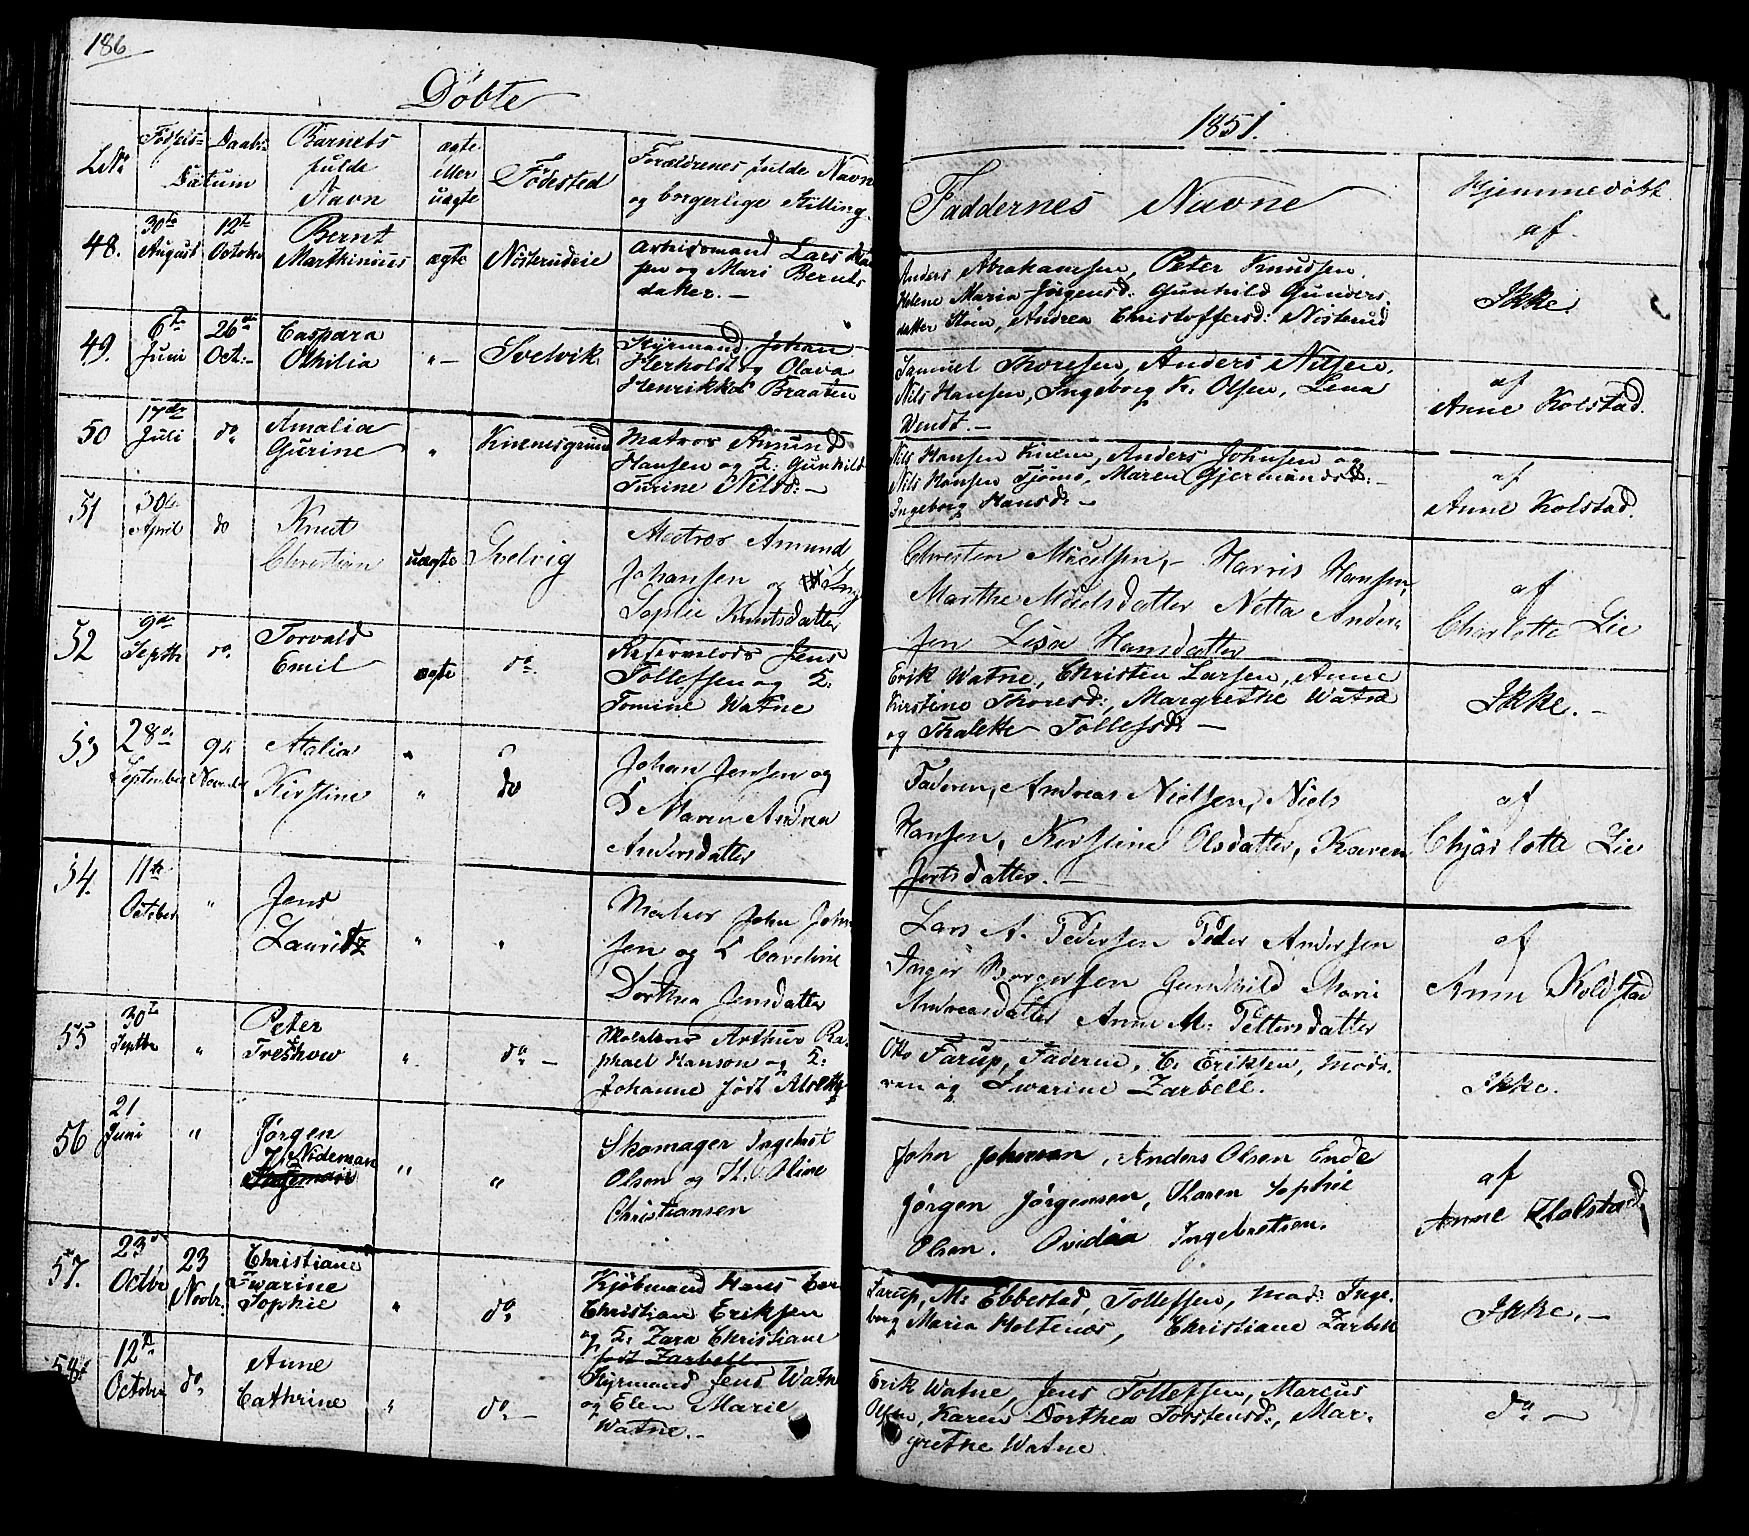 186
Døbte
1851.
L.No
Fødsels-
Daabs-
Datum
Barnets
fulde
Navn
ægte
eller
uægte
Fødested
Forældrenes fulde Navn
og borgerlige Stilling.
Faddernes Navne
Hjemmedøbt
af.
48.
30te
August
12te
October
Bernt
Marthinius
ægte
Nøsterudeie
Arbeidsmand Lars
sen og Mari Bernts
datter. –
Anders Abrahamsen, Peter Knudsen.
Helene Maria Jørgensd: Gunhild Gunders.
datter Steen, Andrea Christoffersd: Nøsterud
Ikke.
49.
6te
Juni
26de
Oct:-
Caspara
Othilia
"–
Svelvik.
Styrmand Johan
Herholdt og Olava
Henrikke Braaten
Samuel Thoresen, Anders Nilsen.
Nils Hansen, Ingeborg K. Olsen, Lena
Wendt. –
af
Anne Kolstad.
50
17de
Juli
do.
Amalia
Gurine
"
Kinnesgrund
Matros Amund
Hansen og H: Gunhild
Turine Nilsd: –
Nils Hansen Kinn, Anders Johnsen og
Nils Hansen Tjømø, Maren Gjermandsd: –
Ingeborg Hansd: –
af
Anne Kolstad.
51
30te
April
do
Knut
Christian
uægte
Svelvig
Matros Amund
Johansen og Ing
Sophie Knutsdatter
Christen Micelsen, – Harris Hansen,
Marthe Micelsdatter Netta Ander-
sen Lisa Hansdatter
af
Charlotte Lie
52
9de
Septbr
do.
Torvald
Emil
ægte
do.
Reservelods Jens
Tollefsen og H:
Tomine Watne
Erik Watne, Christen Larsen, Anne
Kirstine Thoresd:, Margrethe Watne
og Thalette Tollefsd: –
Ikke. –
53
28de
September
9de
November
Atalia
Kirstine
"
"
do
Johan Jensen og
H Maren Andrea
Andersdatter
Faderen, Andreas Nielsen, Niels
Hansen, Kirstine Olsdatter, Karen
Jortsdatter. –
af
Chjarlotte Lie
54.
11te
October
"
Jens
Lauritz
"
"
Matros John John
sen og H Caroline
Dorthea Jensdatter
Lars A. Pedersen Peder Andersen
Inger Borgersen Gunnhild Marie
Andreasdatter Anne M: Pettersdatter
af
Ann Koldstad
55
30te
Septbr
"
Peter
Treshow
"
do. –
Arthur Ra-
phael Hanson og H:
Johanne født
Otto Farup, Faderen, C. Eriksen, Mode-
ren og Iwarine Zarbell.
Ikke.
56
21
Juni
"
Jørgen
Nodeman
"
"
Skomager Ingebret
Olsen og H. Oline
Christiansen
John Johnsen, Anders Olsen Ende
Jørgen Jørgensen, Karen Sophie
Olsen. Ovidia Ingebretsen.
af
Anne Kolstad,
57.
23de
Octbr
23
Novbr.
Christiane
Iwarine
Sophie
"
do.
Kjøbmand Hans Carl
Christian Eriksen
og H: Zara Christiane
født Zarbell
Farup, M: Ebbestad, Tollefsen, Mad: Inge-
borg Maria Holtenos, Christiane Zarbell
Ikke. –
58
12te
October
do.
Anne
Cathrine
"
do. –
Styrmand Jens Watne
og Elen Marie
Watne. –
Erik Watne, Jens Tollefsen, Marcus
Olsen, Karen Dorthea Torstensd:, Mar-
grethe Watne.
do. –